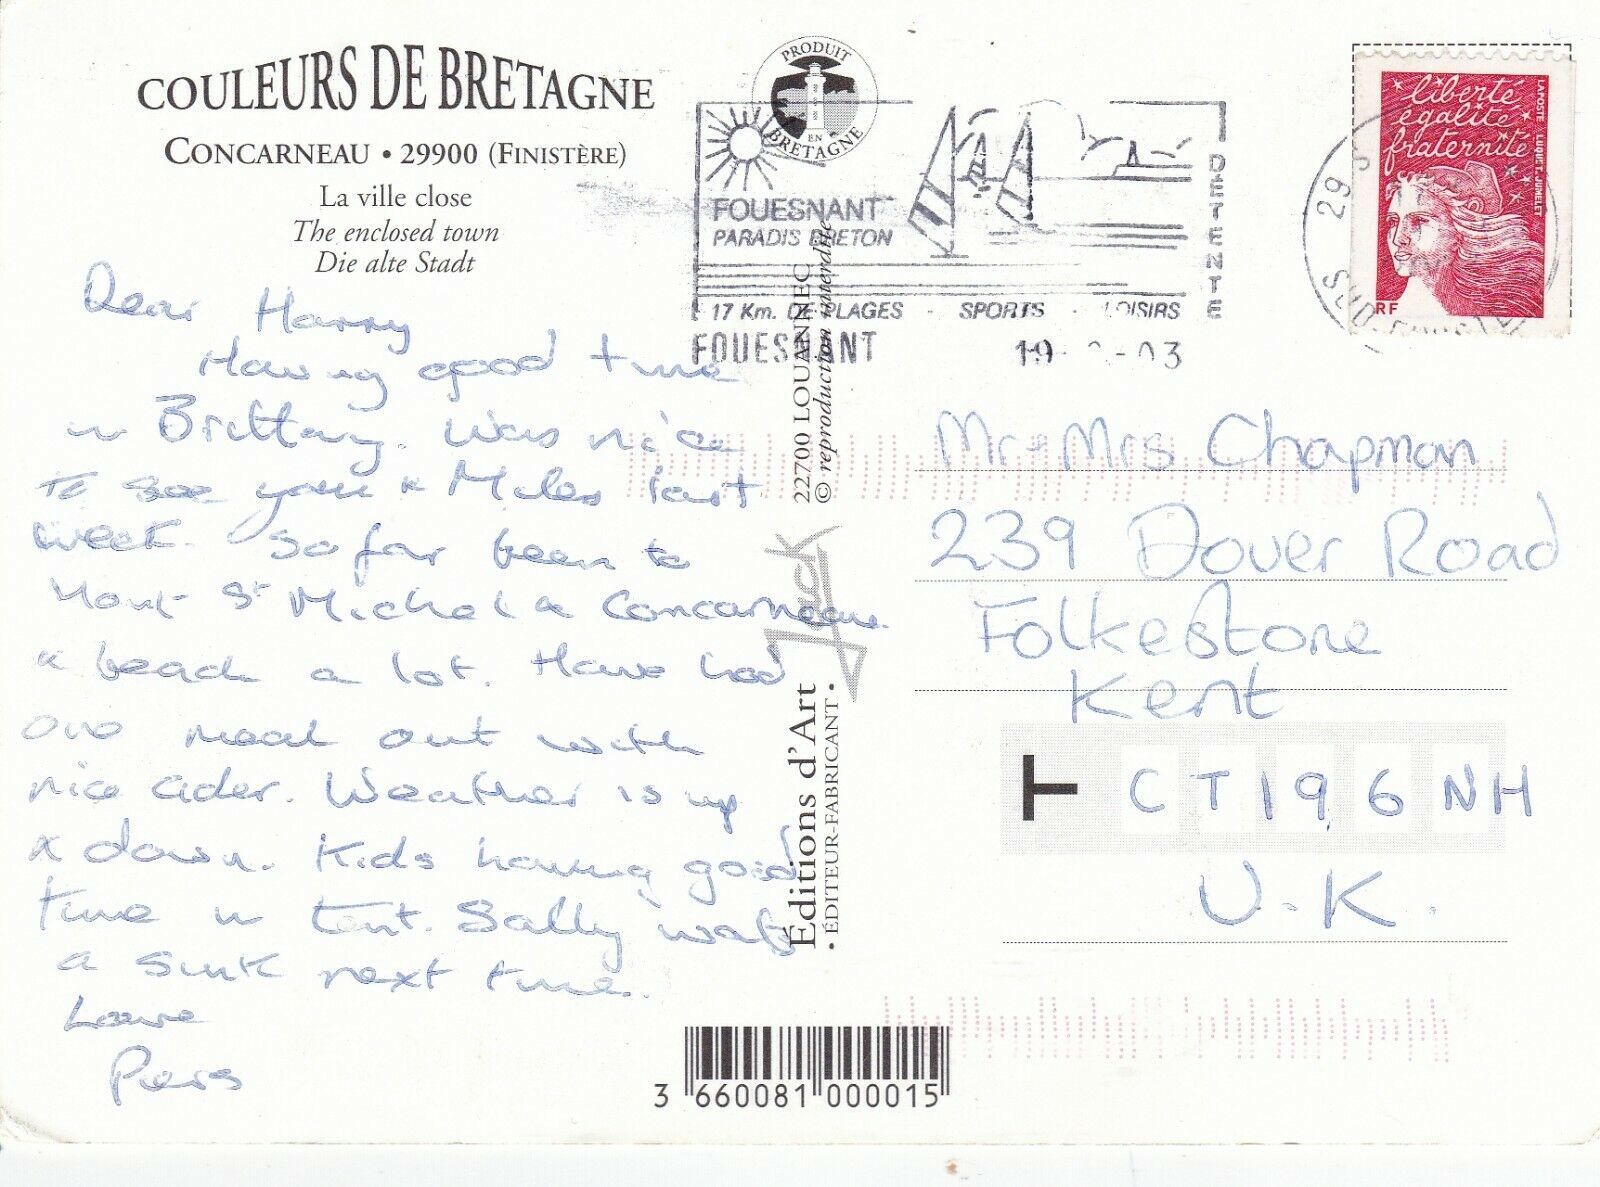 COULEURS DE BRETAGNE
CONCARNEAU • 29900 (FINISTÈRE)
La ville close
The enclosed town
Die alte Stadt
Dear Harry
Having good time
in Brittany. Was nice
to see you & Miles last
week. So far been to
Mont St Michel & Concarneau
& beach a lot. Have had
one meal out with
nice cider. Weather is up
& down. Kids having good
time in tent. Sally wants
a sink next time.
Love
Piers
PRODUIT
EN
BRETAGNE
FOUESNANT
PARADIS BRETON
17 Km. DE PLAGES - SPORTS - LOISIRS
DETENTE
FOUESNANT
19 -03
22700 LOUANNEC
© reproduction interdite
Jack
Éditions d'Art
• ÉDITEUR-FABRICANT •
liberté
égalité
fraternité
LA POSTE LUQUET-JUMELET
RF
29
SUD-FINISTERE
Mr & Mrs Chapman
239 Dover Road
Folkestone
Kent
T CT19 6NH
U.K.
3 660081 000015